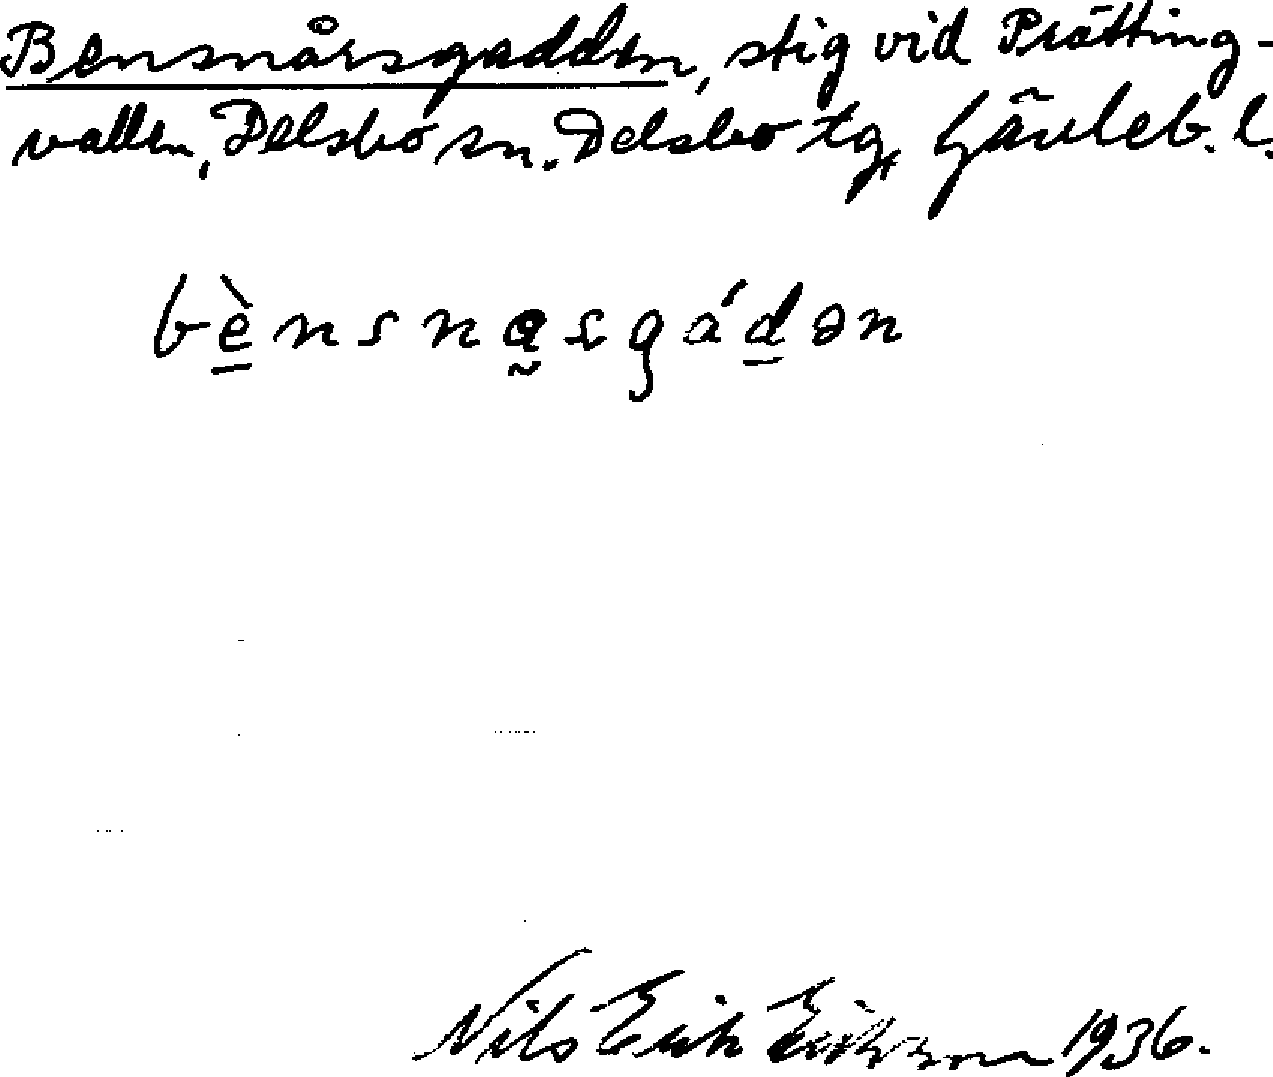 Bensnårsgadden, stig vid Prätting-
vallen, Delsbo sn. Delsbo tg, Gävleb. l.
bènsnạsgádən
Nils Erik Eriksson 1936.